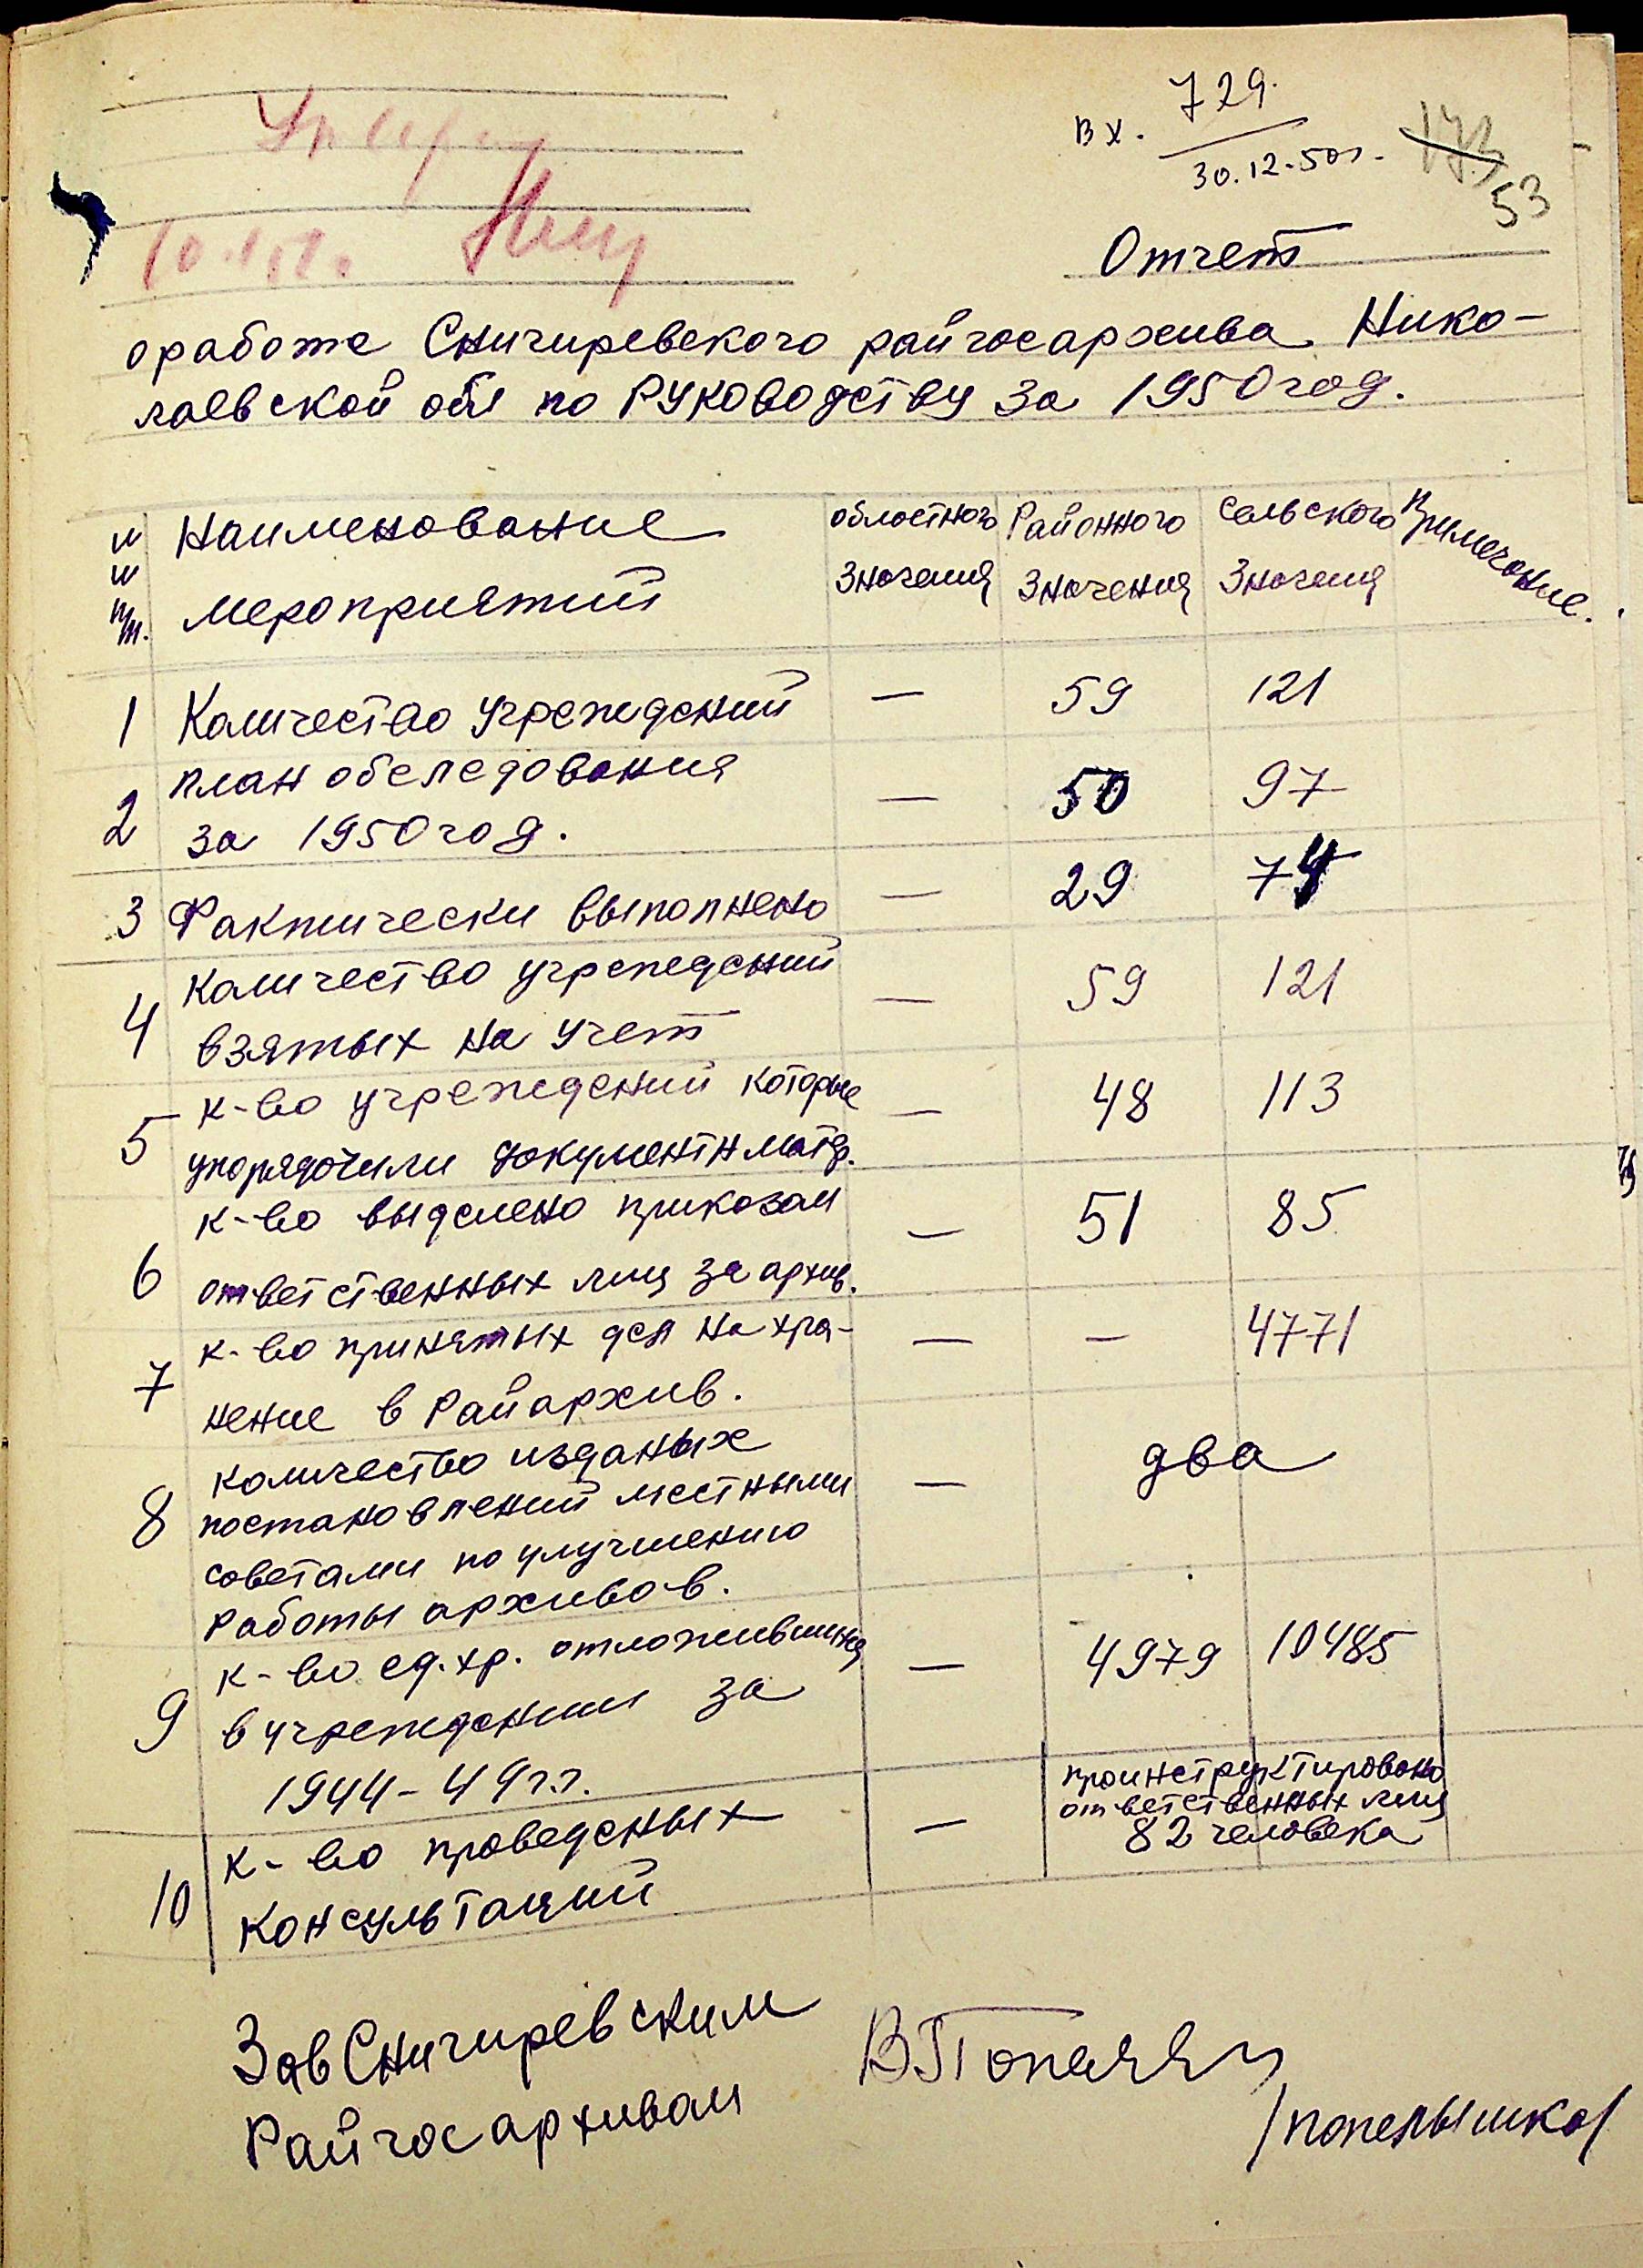 вх. 729.
30.12.50г.
173
53
Отчет
о работе Сничиревского райгосархива Нико-
лаевской обл по руководству за 1950 год.
Наименование мероприятий
областного значения
Районного значения
Сельского значения
Примечание.
1 Количество учреждений — 59 121
2 план обследования — 50 97
за 1950 год.
3 Фактически выполнено — 29 74
4 количество учреждений — 59 121
взятых на учет
5 к-во учреждений которые — 48 113
упорядочили документ матер.
6 к-во выделено приказом — 51 85
ответственных лиц за архив.
7 к-во принятых дел на хра- — — 4771
нение в Райархив.
8 количество изданых — два
постановлений местными
советами по улучшению
работы архивов.
9 к-во ед.хр. отложившихся — 4979 10485
в учреждении за
1944-49 г.г.
10 к-во проведеных — проинструктировано
ответственных лиц
82 человека
консультаций
Зав Сничиревским
Райгосархивом
/попелышко/